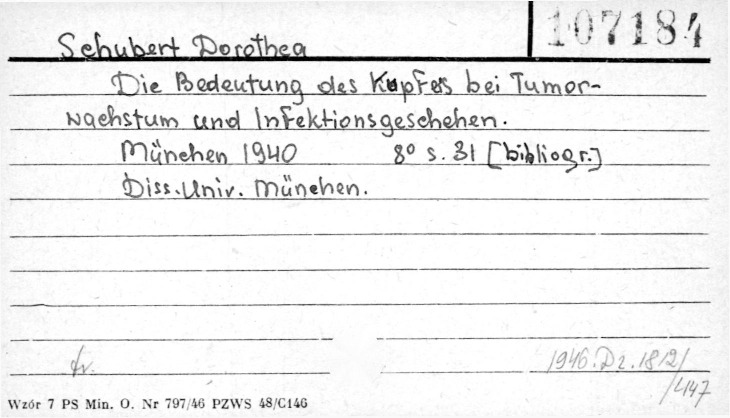 107184
Schubert Dorothea
Die Bedeutung des Kupfers bei Tumor-
wachstum und Infektionsgeschehen.
München 1940 8° s. 31 [bibliogr.]
Diss. Univ. München.
fr.
1946. Dz. 1812/
/447
Wzór 7 PS Min. O. Nr 797/46 PZWS 48/C146